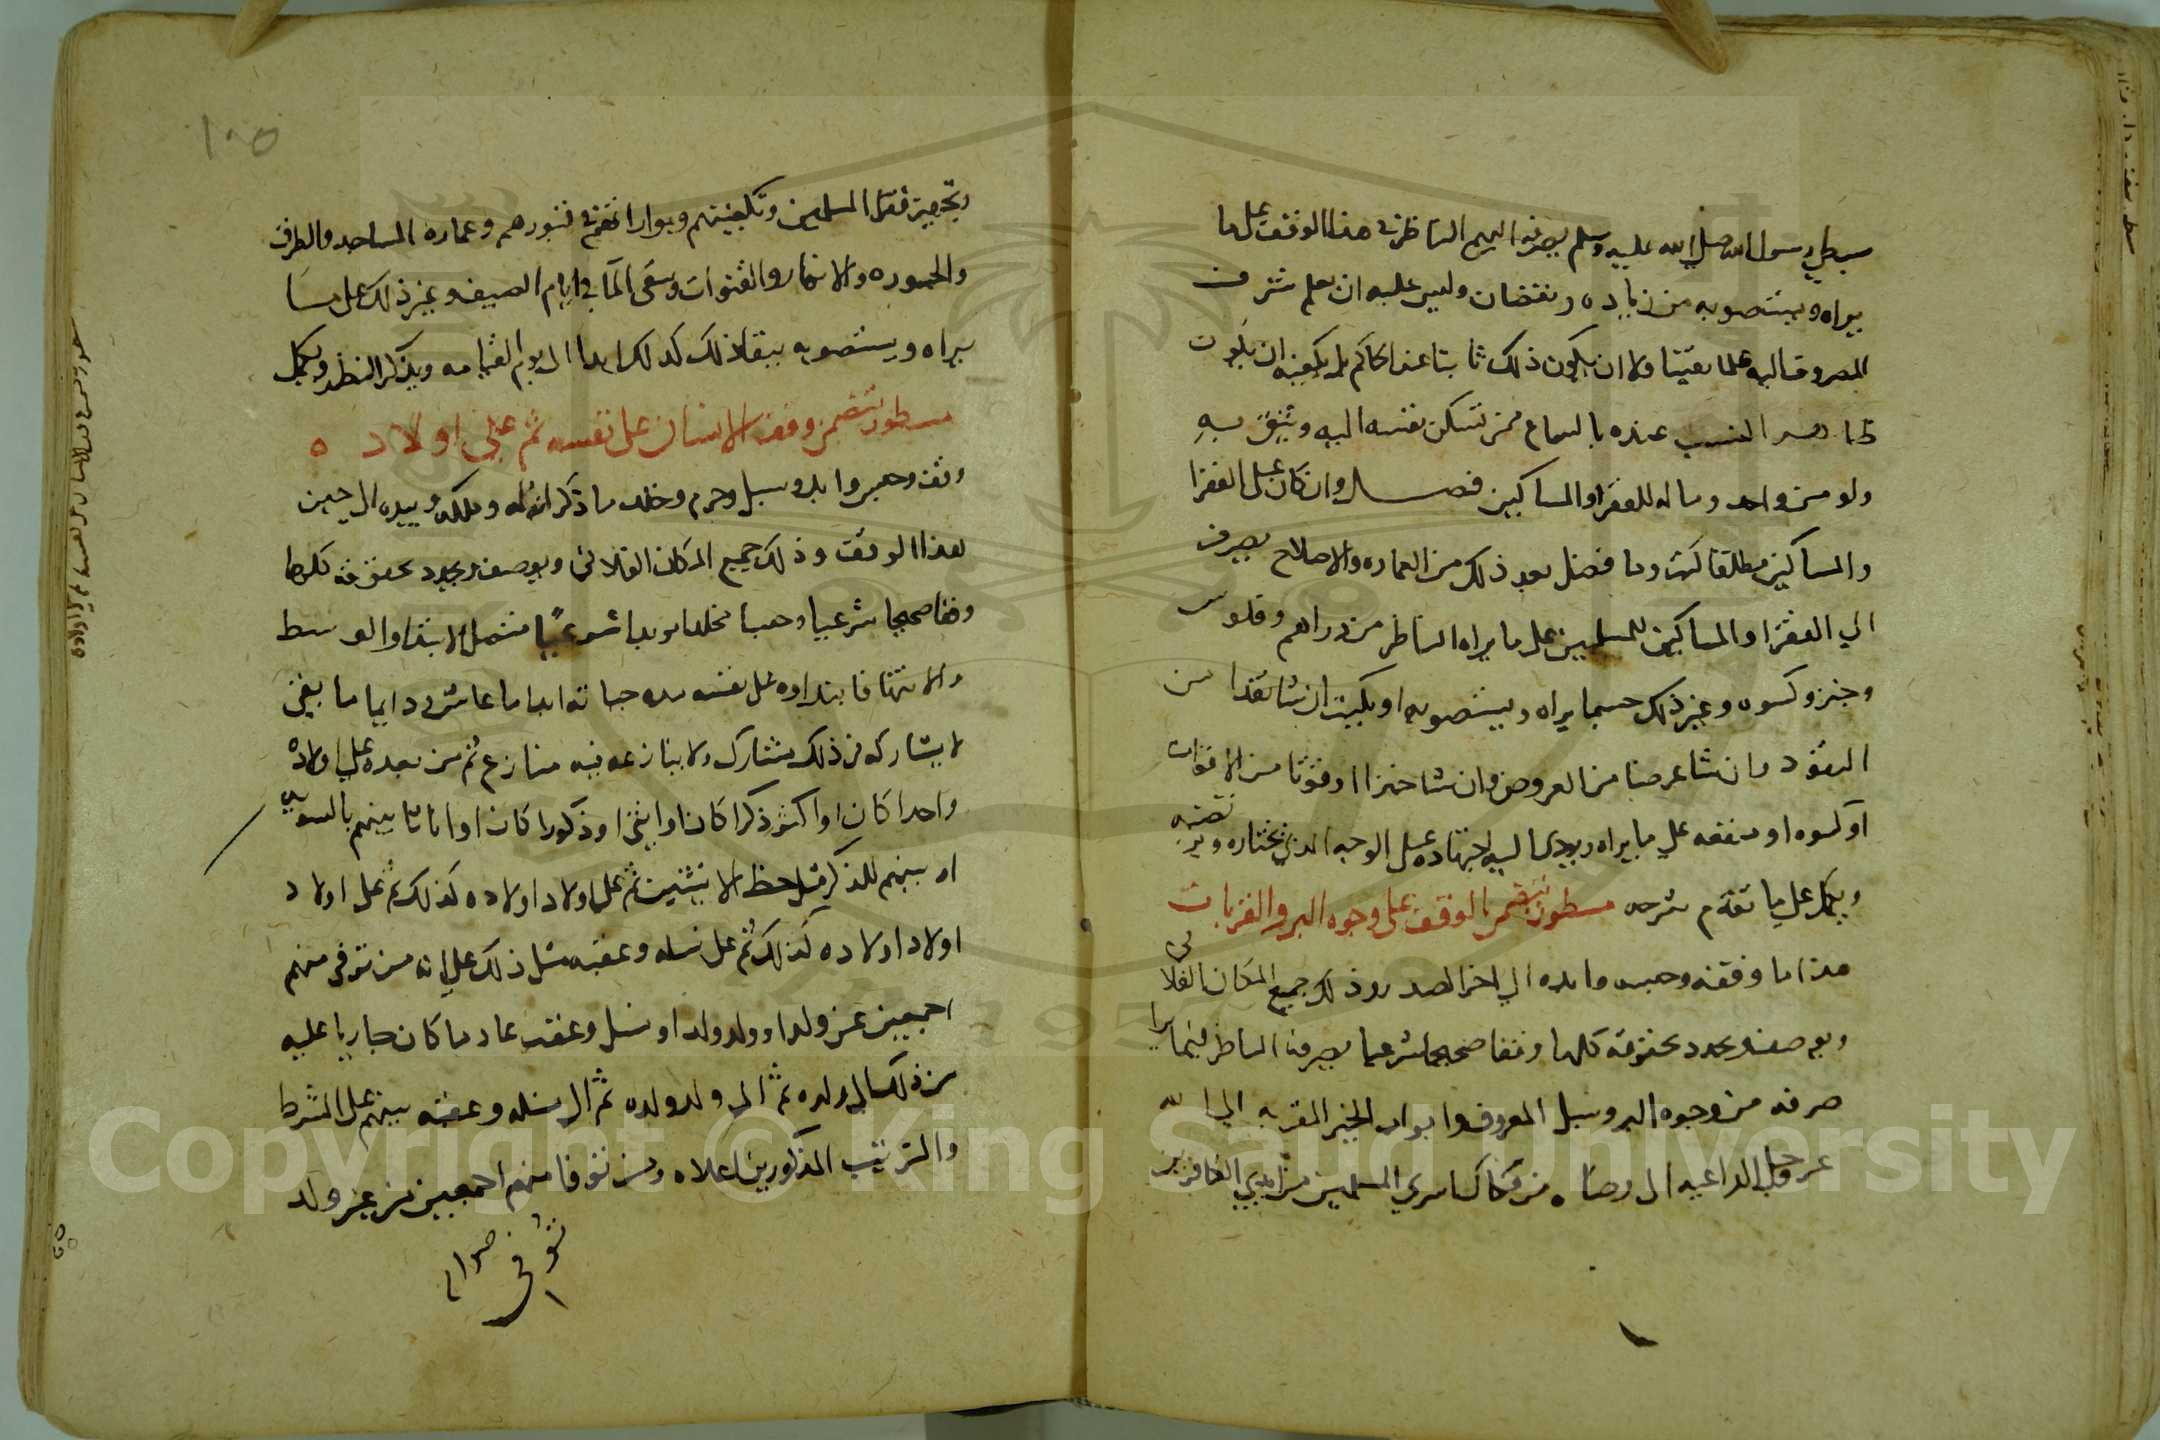 سبطي رسول الله صلي الله عليه وسلم يصرفه اليهم الناظر في هذا الوقف علي ما
يراه ويستصوبه من زياده ونقصان وليس عليه ان يعلم شرف
المصروف اليه علما يقينا ولا ان يكون ذلك ثابتا عند الحاكم بل يكفيه ان يكون
ظاهر النسب عنده بالسماع ممن تسكن نفسه اليه ويثق به
ولو من واحد وماله للفقرا والمساكين فصل وان كان علي الفقرا
والمساكين مطلقا كتب وما فضل بعد ذلك من العماره والاصلاح يصرف
الي الفقرا والمساكين المسلمين علي ما يراه الناظر من دراهم وفلوس
وخبز وكسوه وغير ذلك حسبما يراه ويستصوبه او يكتب ان شا نقدا من
النقود وان شا عرضا من العروض وان شا خبزا او قوتا من الاقوات
او كسوه او منفعه علي ما يراه ويودي اليه اجتهاده علي الوجه الذي يختاره ويرتضيه
ويكمل علي ما تقدم شرحه مسطور يتضمن الوقف علي وجوه البر والقربات
هذا ما وقفه وحبسه وابده الي اخر الصدر وذلك جميع المكان الفلاني
ويوصف ويحدد بحقوقه كلها وقفا صحيحا شرعيا يصرفه الناظر فيما يرا
صرفه من وجوه البر وسبل المعروف وابواب الخير المقربه الي الله
عز وجل الداعيه الي رضاه من فكاك اسري المسلمين من ايدي الكافرين
١٠٥
وتجهيز فقرا المسلمين وتكفينهم ومواراتهم في قبورهم وعماره المساجد والطرق
والجسوره والانهار والقنوات وسقي المآ في ايام الصيف وغير ذلك علي مسا
يراه ويستصوبه يبقا ذلك كذلك ابدا الي يوم القيامه ويذكر النظر ويكمل
مسطور يتضمن وقف الانسان علي نفسه ثم علي اولاد ه
وقف وحبس وابد وسبل وحرم وخلد ما ذكر انه له وملكه وبيده الي حين
هذا الوقف وذلك جميع المكان الفلاني ويوصف ويحدد بحقوقه كلها
وقفا صحيحا شرعيا وحبسا مخلدا موبدا شرعيا يشمل الابتدا والوسط
والانتها فابتداوه علي نفسه مده حياته ابدا ما عاش ودايما ما بقي
لا يشاركه في ذلك مشارك ولا ينازعه فيه منازع ثم من بعده علي اولاده
واحدا كان او اكثر ذكرا كان او انثي او ذكورا كان او اناثا بينهم بالسويه
او بينهم للذكر مثل حظ الانثيين ثم علي اولاد اولاده كذلك ثم علي اولاد
اولاد اولاده كذلك ثم علي نسله وعقبه مثل ذلك علي انه من توفي منهم
اجمعين عن ولد او ولد ولد او نسل وعقب عاد ما كان جاريا عليه
من ذلك الي ولده ثم الي ولد ولده ثم الي نسله وعقبه بينهم علي الشرط
والترتيب المذكورين اعلاه ومن توفا منهم اجمعين من غير ولد
توفي صوا
Copyright © King Saud University